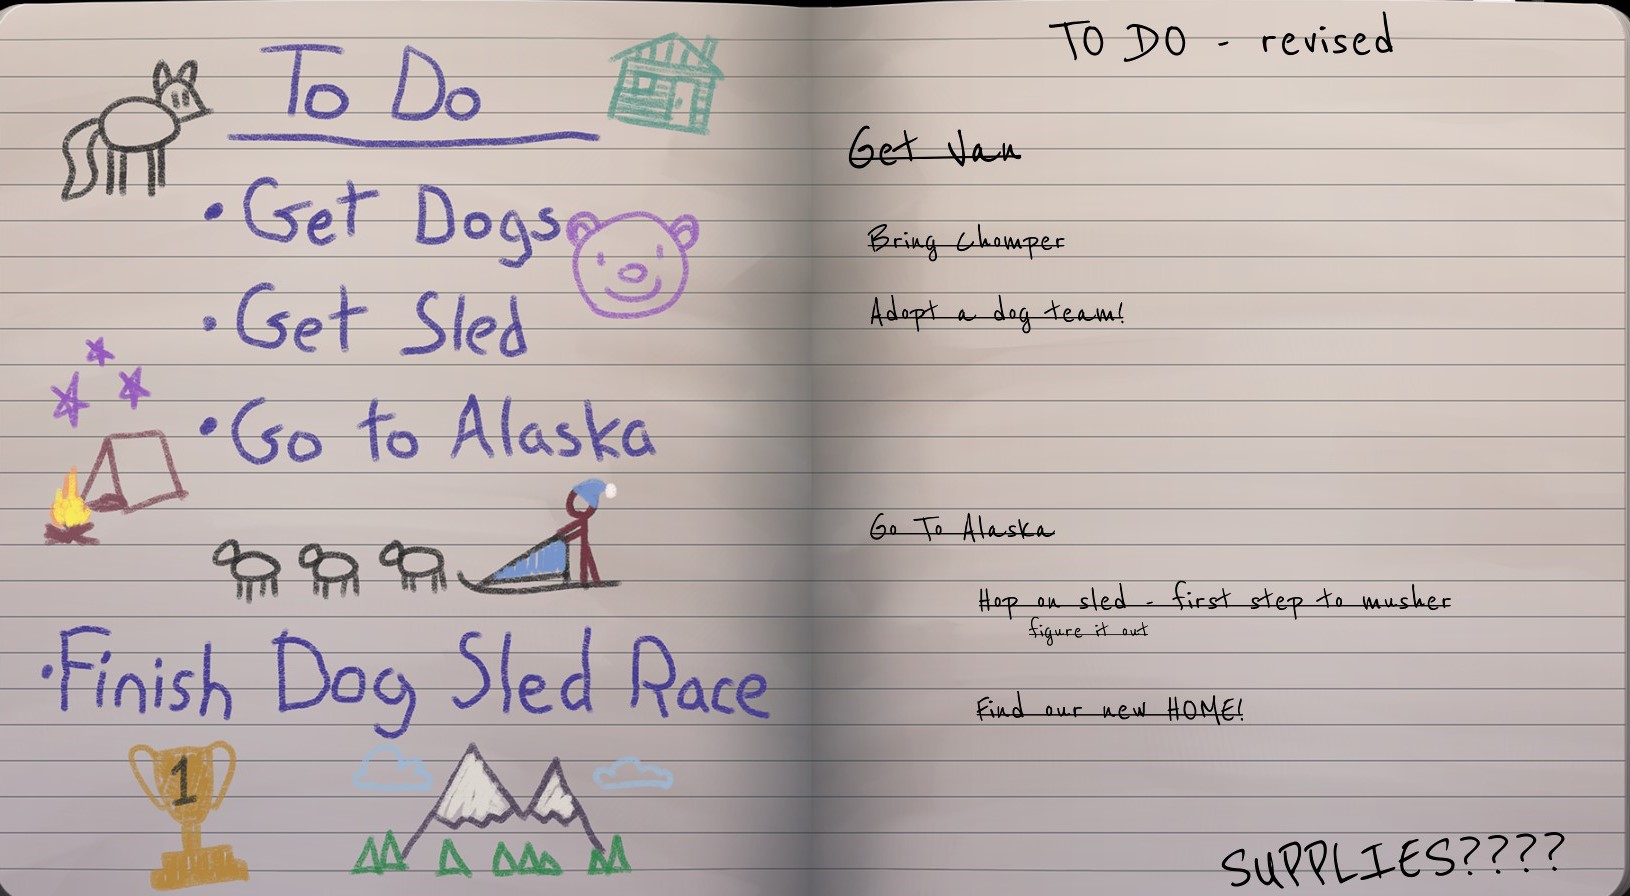 To Do
• Get Dogs
• Get Sled
• Go to Alaska
• Finish Dog Sled Race
1
TO DO - revised
Get Van
Bring Chomper
Adopt a dog team!
Go To Alaska
Hop on sled - first step to musher
figure it out
Find our new HOME!
SUPPLIES????